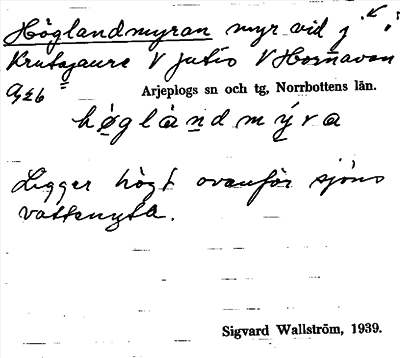 Höglandmyran myr vid
Krutajaure V Jutis V Hornavan
Arjeplogs sn och tg, Norrbottens län.
Ligger högt ovanför sjöns
vattenyta.
Sigvard Wallström, 1939.